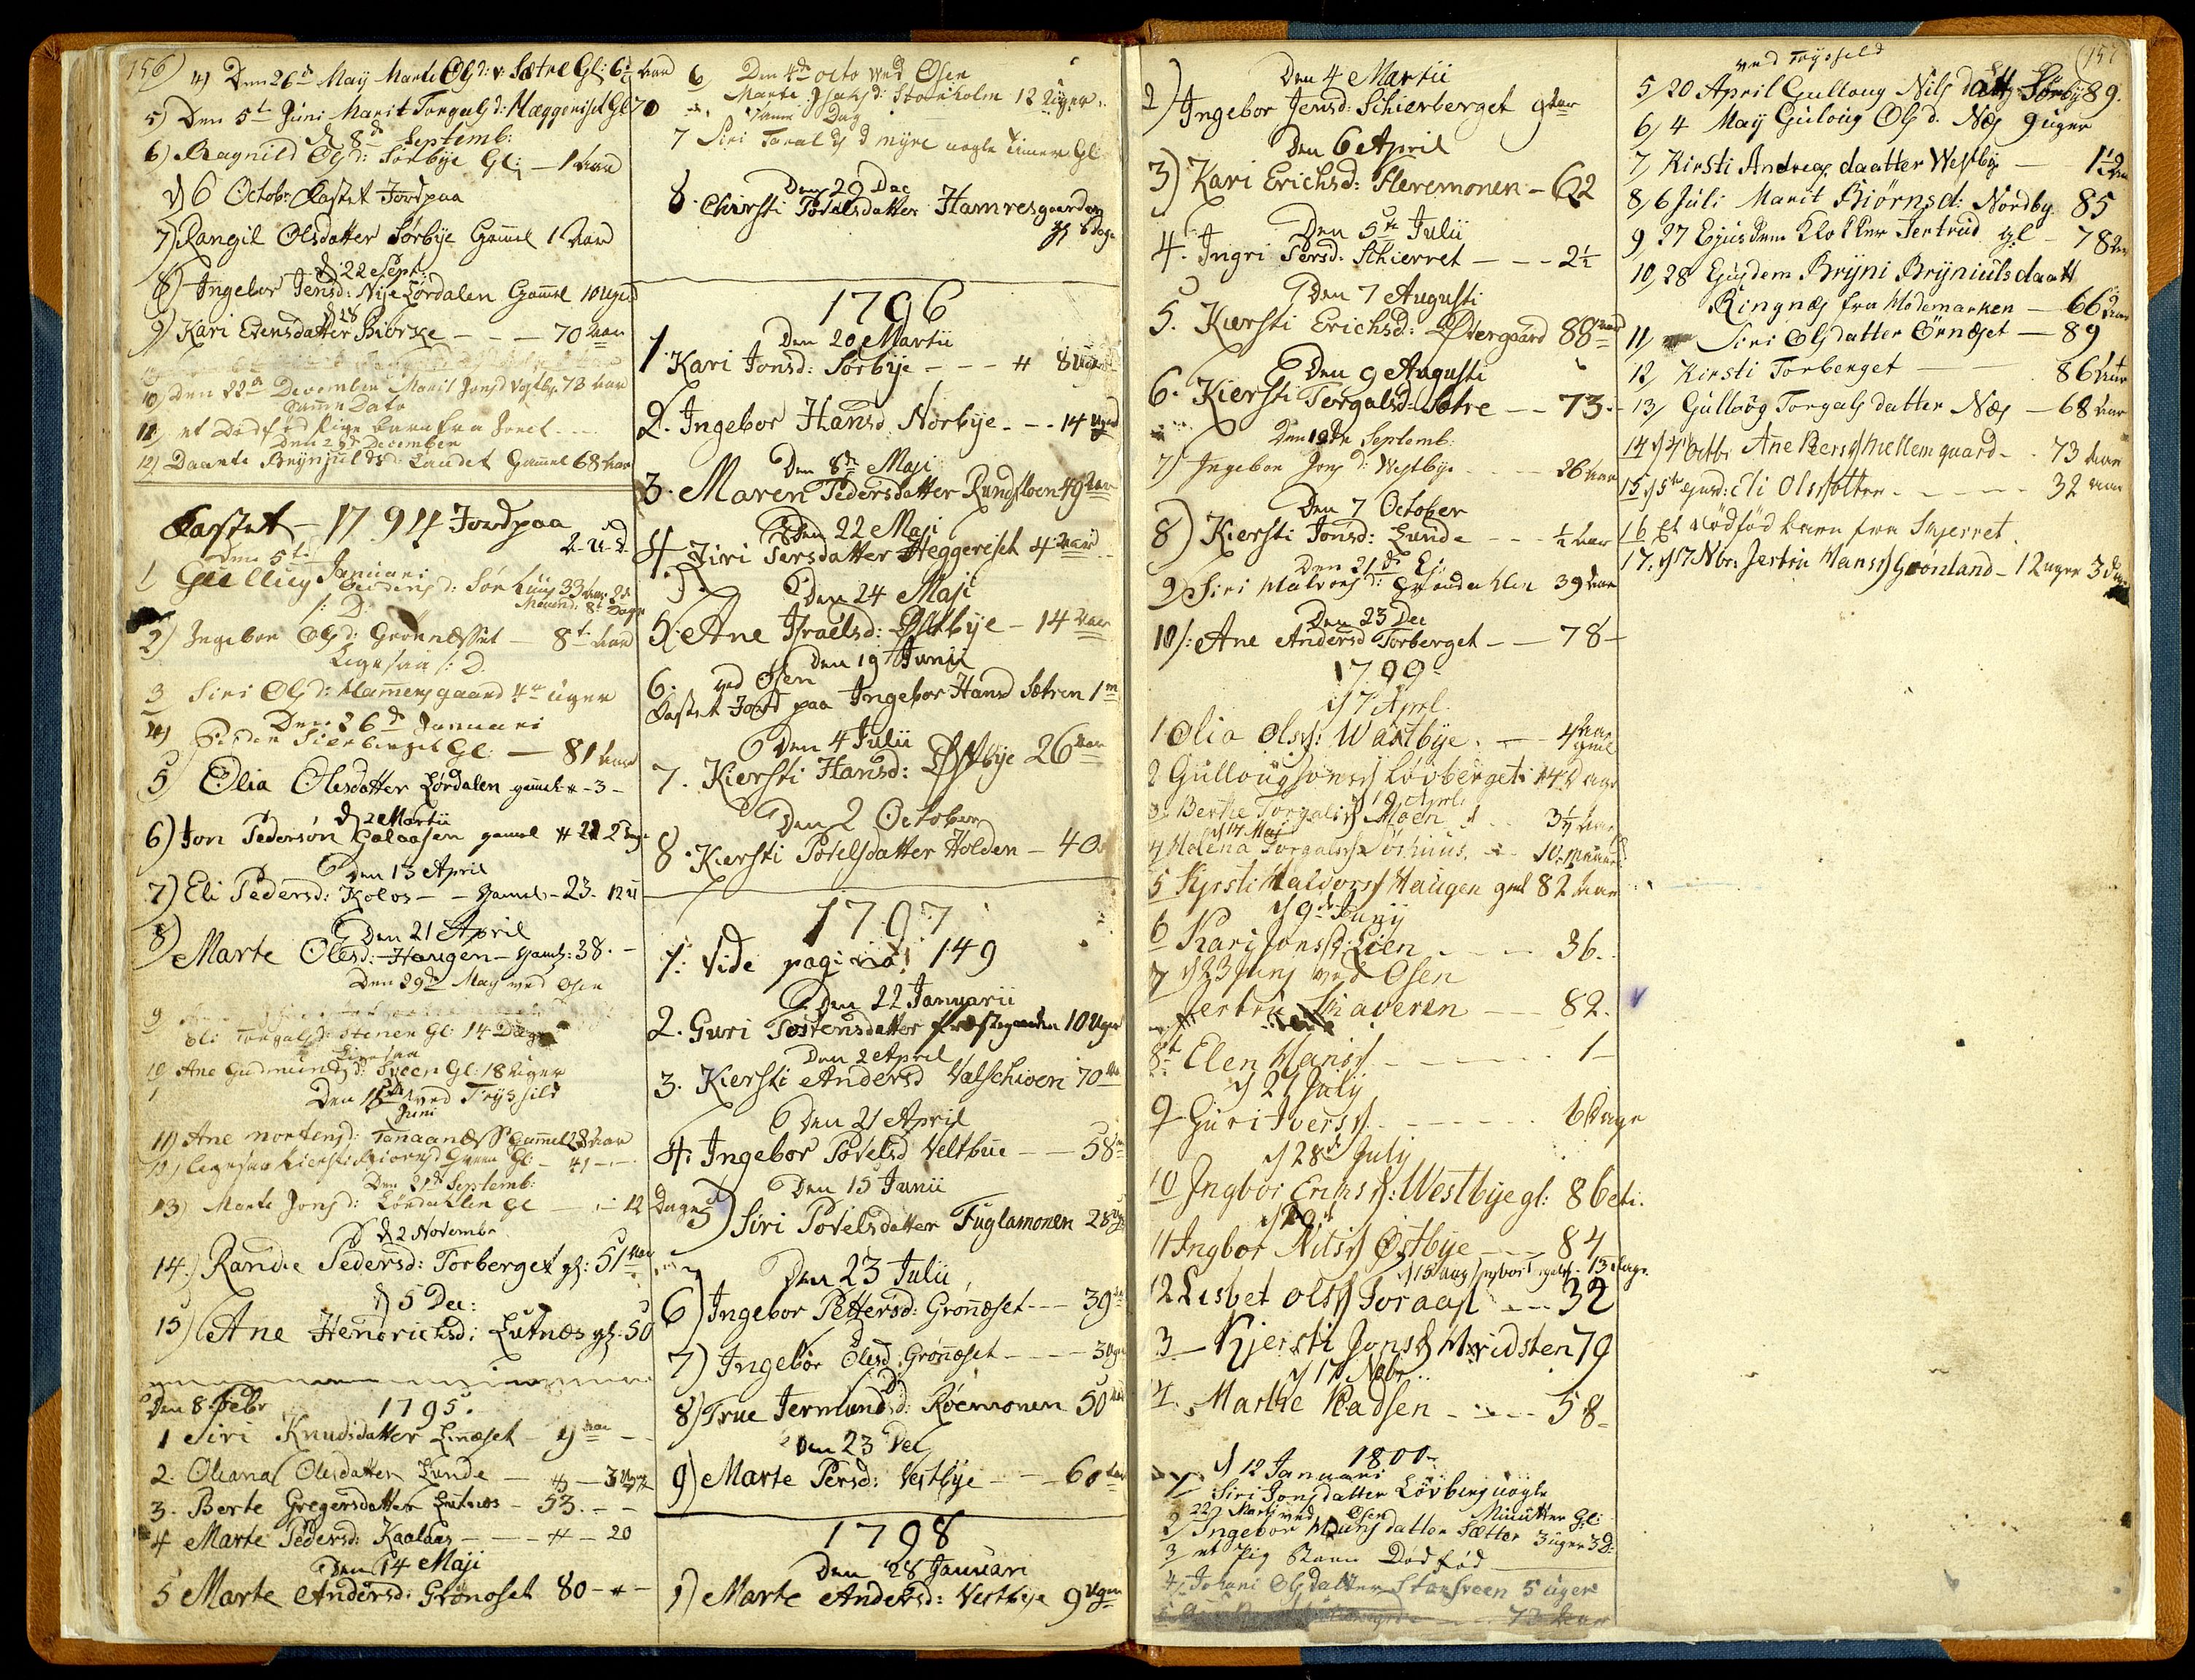 156)
4) Den 26de May Marte Olsd: v: Sætre Gl: 6 t aar
5) Den 5te Juni Marit Torgalsd: Hæggeriset Gl 70
d 8de Septemb:
6) Ragnild Olsd: Sørbye Gl: — 1 aar
d 6 Octobr Kastet Jord paa
7) Rangil Olsdatter Sørbye Gammel 1 aar
d 22 Sept:
8) Ingebor Jensd: Nye Lørdalen Gammel 10 Uger
d 28
9) Kari Evensdatter Biørke — — — 70 aar
10) Den 22de December Marit Jonsd Vestbye 73 aar
Samme Dato
11 et Dødfød Pige barn fra Joret - - -
Den 26de December
12) Daarte Brynjulds d: Landet Gamel 68 aar
Kastet — 1794 Jord paa
Den 5te Januari
1 Gulluug Endens d: Sørhuus 33 aar 2de
Maaned: 8t Dage
2) Ingebor Olsd: Grønnæsset — 8t aar
Ligesaa /: D:
3 Siri Olsd: Hammersgaard 4re uger
Den 26de Januari
4) Gl: — 81 aar
5) Olia Olesdatter Lørdalen gamel # - 3 -
d 2 Martii
6) Jon Pedersøn Galaasen gamel # 2 Dage
Den 13 April
7) Eli Pedersd: Kolos - - gamel - 23. 12 U
Den 21 April
8) Marte Olesd: Haugen - gamel: 38. -
Den 29de May ved Osen
9
Eli Torgalsd: Stenen Gl: 14 Dage
Ligesaa
10 Ane Gudmundsd: Sveen Gl: 18 Uger
Den 18de ved Trysild
Juni
11) Ane Mortensd: Tanaanæss Gammel 28 aar
12) Ligesaa Kiersti Biørnsd Gl - 41 - -
Den 21de Septemb:
13) Marte Jonsd: Lørdahlen Gl — - 12 Dage
d 2 Novembr
14.) Randie Pedersd: Torberget gl: 51 aar
d 5 Dec:
15) Ane Hendrichsd: Lutnæs gl: 50
Den 8 Febr 1795.
1 Siri Knudsdatter Linæset - 9 aar - -
2. Oleana Olesdatter Lunde — # — 3 Uger
3. Berte Gregersdatter Lutnæs - 53. - -
4 Marte Pedersd: Kaalaas - - - # - 20
Den 14 Maji
5 Marte Andersd: Grønoset 80 - # -
6, Den 4de Octo ved Osen
Marte Isaksd: Storeholm 12 Uger
Samme Dag
7 Siri Toralds d Myre nogle Timer Gl
Den 29 Dec
8. Chirsti Povelsdatter Hamresgaarden
gl 8 Dage
1796
Den 20 Martii
1. Kari Jonsd: Sørbye - - - # 8 Uger
2. Ingebor Hansd Norbye. - - 14 Uger
Den 8de Maji
3. Maren Pedersdatter Rundfloen 49 aar
Den 22 Maji
4 Siri Persdatter Heggeriset 4 aar
Den 24 Maji
5. Ane Israelsd: Østbye - 14 aar
Den 19 Junii
6. ved Osen
Kastet Jord paa Ingebor Hansd Sætren 1 m
Den 4 Julii
7. Kiersti Hansd: Østbye 26 aar
Den 2 October
8. Kiersti Povelsdatter Holden - 40
1797
1. Vide pagina 149
Den 22 Januarii
2. Guri Tostensdatter Præstegaarden 10 Uger
Den 2 April
3. Kiersti Andersd Valschioen 70 aar
Den 21 April
4. Ingebor Povelsd Veltbue — — 58
Den 15 Junii
5) Siri Povelsdatter Fuglamonen 28
Den 23 Julii
6) Ingebor Pettersd: Grønæset - - - 39
7) Ingebor Olesd Grønæset - - - - 3 Uger
8) True Jermundsd: Røemonen 50
Den 23 Dec
9) Marte Persd: Vestbye — — 60 aar
1798
Den 28 Januari
1) Marte Andersd: Vestbye 9 Uger
Den 4 Martii
2) Ingebor Jensd: Schierberget 9 aar
Den 6 April
3) Kari Erichsd: Fleremonen - 62
Den 5te Julii
4. Ingri Persd: Schierret - - - 2½
Den 7 Augusti
5. Kiersti Erichsd: Østergaard 88 aar
Den 9 Augusti
6. Kiersti Torgalsd: Sætre - - 73.
Den 12te Septemb:
7) Ingebor Jonsd: Vestbye - - - 26 aar
Den 7 October
8) Kiersti Jonsd: Lunde - - - ½ aar
Den 21de Ej:
9) Siri Halvorsd: 39 aar
Den 23 Dec
10/: Ane Andersd Torberget - - 78 -
1799
d 7 April
1 Olia Olsd: Wæstbye. - - 4 aar
gml
2 Gulloug Jonsd Løvberget: 14 Dage
d 19 April
3. Berthe Torgalsd Moen - - 3½ aar
d 17 Maj
4 Helena Torgalsd Sørhuus. - - 10 Maaned
5 Kjrsti Halvorsd Haugen gml 82 aar
d 9de Junij
6 Kari Jonsd: Lien - - - 36.
7 d 23 Junj ved Osen
Jertru Skaveren - - - 82.
8t Elen Hansd - - - - - 1 -
d 21 July
9 Guri Iversd. - - - - - - 6 Dage
d 28de July
10 Ingbor Eriksd: Westbye gl: 86
d 29
11 Ingbor Nilsd Østbye - - - 84
d 15 Aug 13 dage.
12 Lisbet Olsd Toraas - - - 32
3 - Kjersti Jonsd Hvidsten 79
d 17 Nobr..
4. Marthe Kadsen - - - - 58 -
1800
d 12 Januari
1 Siri Jonsdatter Løvberg nogle
Minutter Gl:
22 Martj ved Osen
2) Ingebor Mons datter Sætter 3 uger 3 D:
3 et Pig Barn Dødfød
4, Johani Olsdatter Storsveen 5 uger
73 aar
(157
ved Trysild
5) 20 April Gulloug Nils datt: Sørby 89.
6) 4 May Guloug Olsd. Næs 9 uger
7, Kirsti Andreas daatter Westby — 1½ aar
8, 6 Juli Marit Biørnsd: Nordby. 85
9 27 Ejusdem Klokker Jertrud gl - 78 aar
10, 28 Ejusdem Bryni Bryniuls daatt
Ringnæs fra Hedemarken — 66 aar
11, Siri Olsdatter Ørnæset — 89
12, Kirsti Torberget — — 86 aar
13, Gulloug Torgals datter Næs — 68 aar
14 d 4 Octbr Ane Persd Mellemgaard - 73 aar
15 d 5te Ejusd: Eli Olsdatter - - - - - 32 aar
16 Et Dødfød barn fra Skjerret.
17. d 17 Nbr. Jertru Hansd Grønland - 12 uger 3 dage